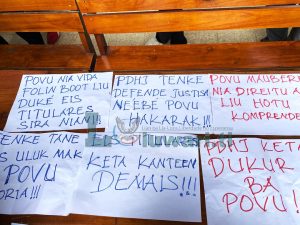 POVU NIA VIDA
FOLIN BOOT LIU
DUKÉ EIS
TITULARES
SIRA NIAN!!
PDHJ TENKE
DEFENDE JUSTISA
NEEBÉ POVU
HAKARAK!!!
POVU MAUBERE
NIA DIREITU A
LIU HOTU
KOMPRENDE
TENKE TANE
ULUK MAK
POVU
ORIA!!!
KETA KANTEEN
DEMAIS!!!
PDHJ KETA
DUKUR
BA
POVU!